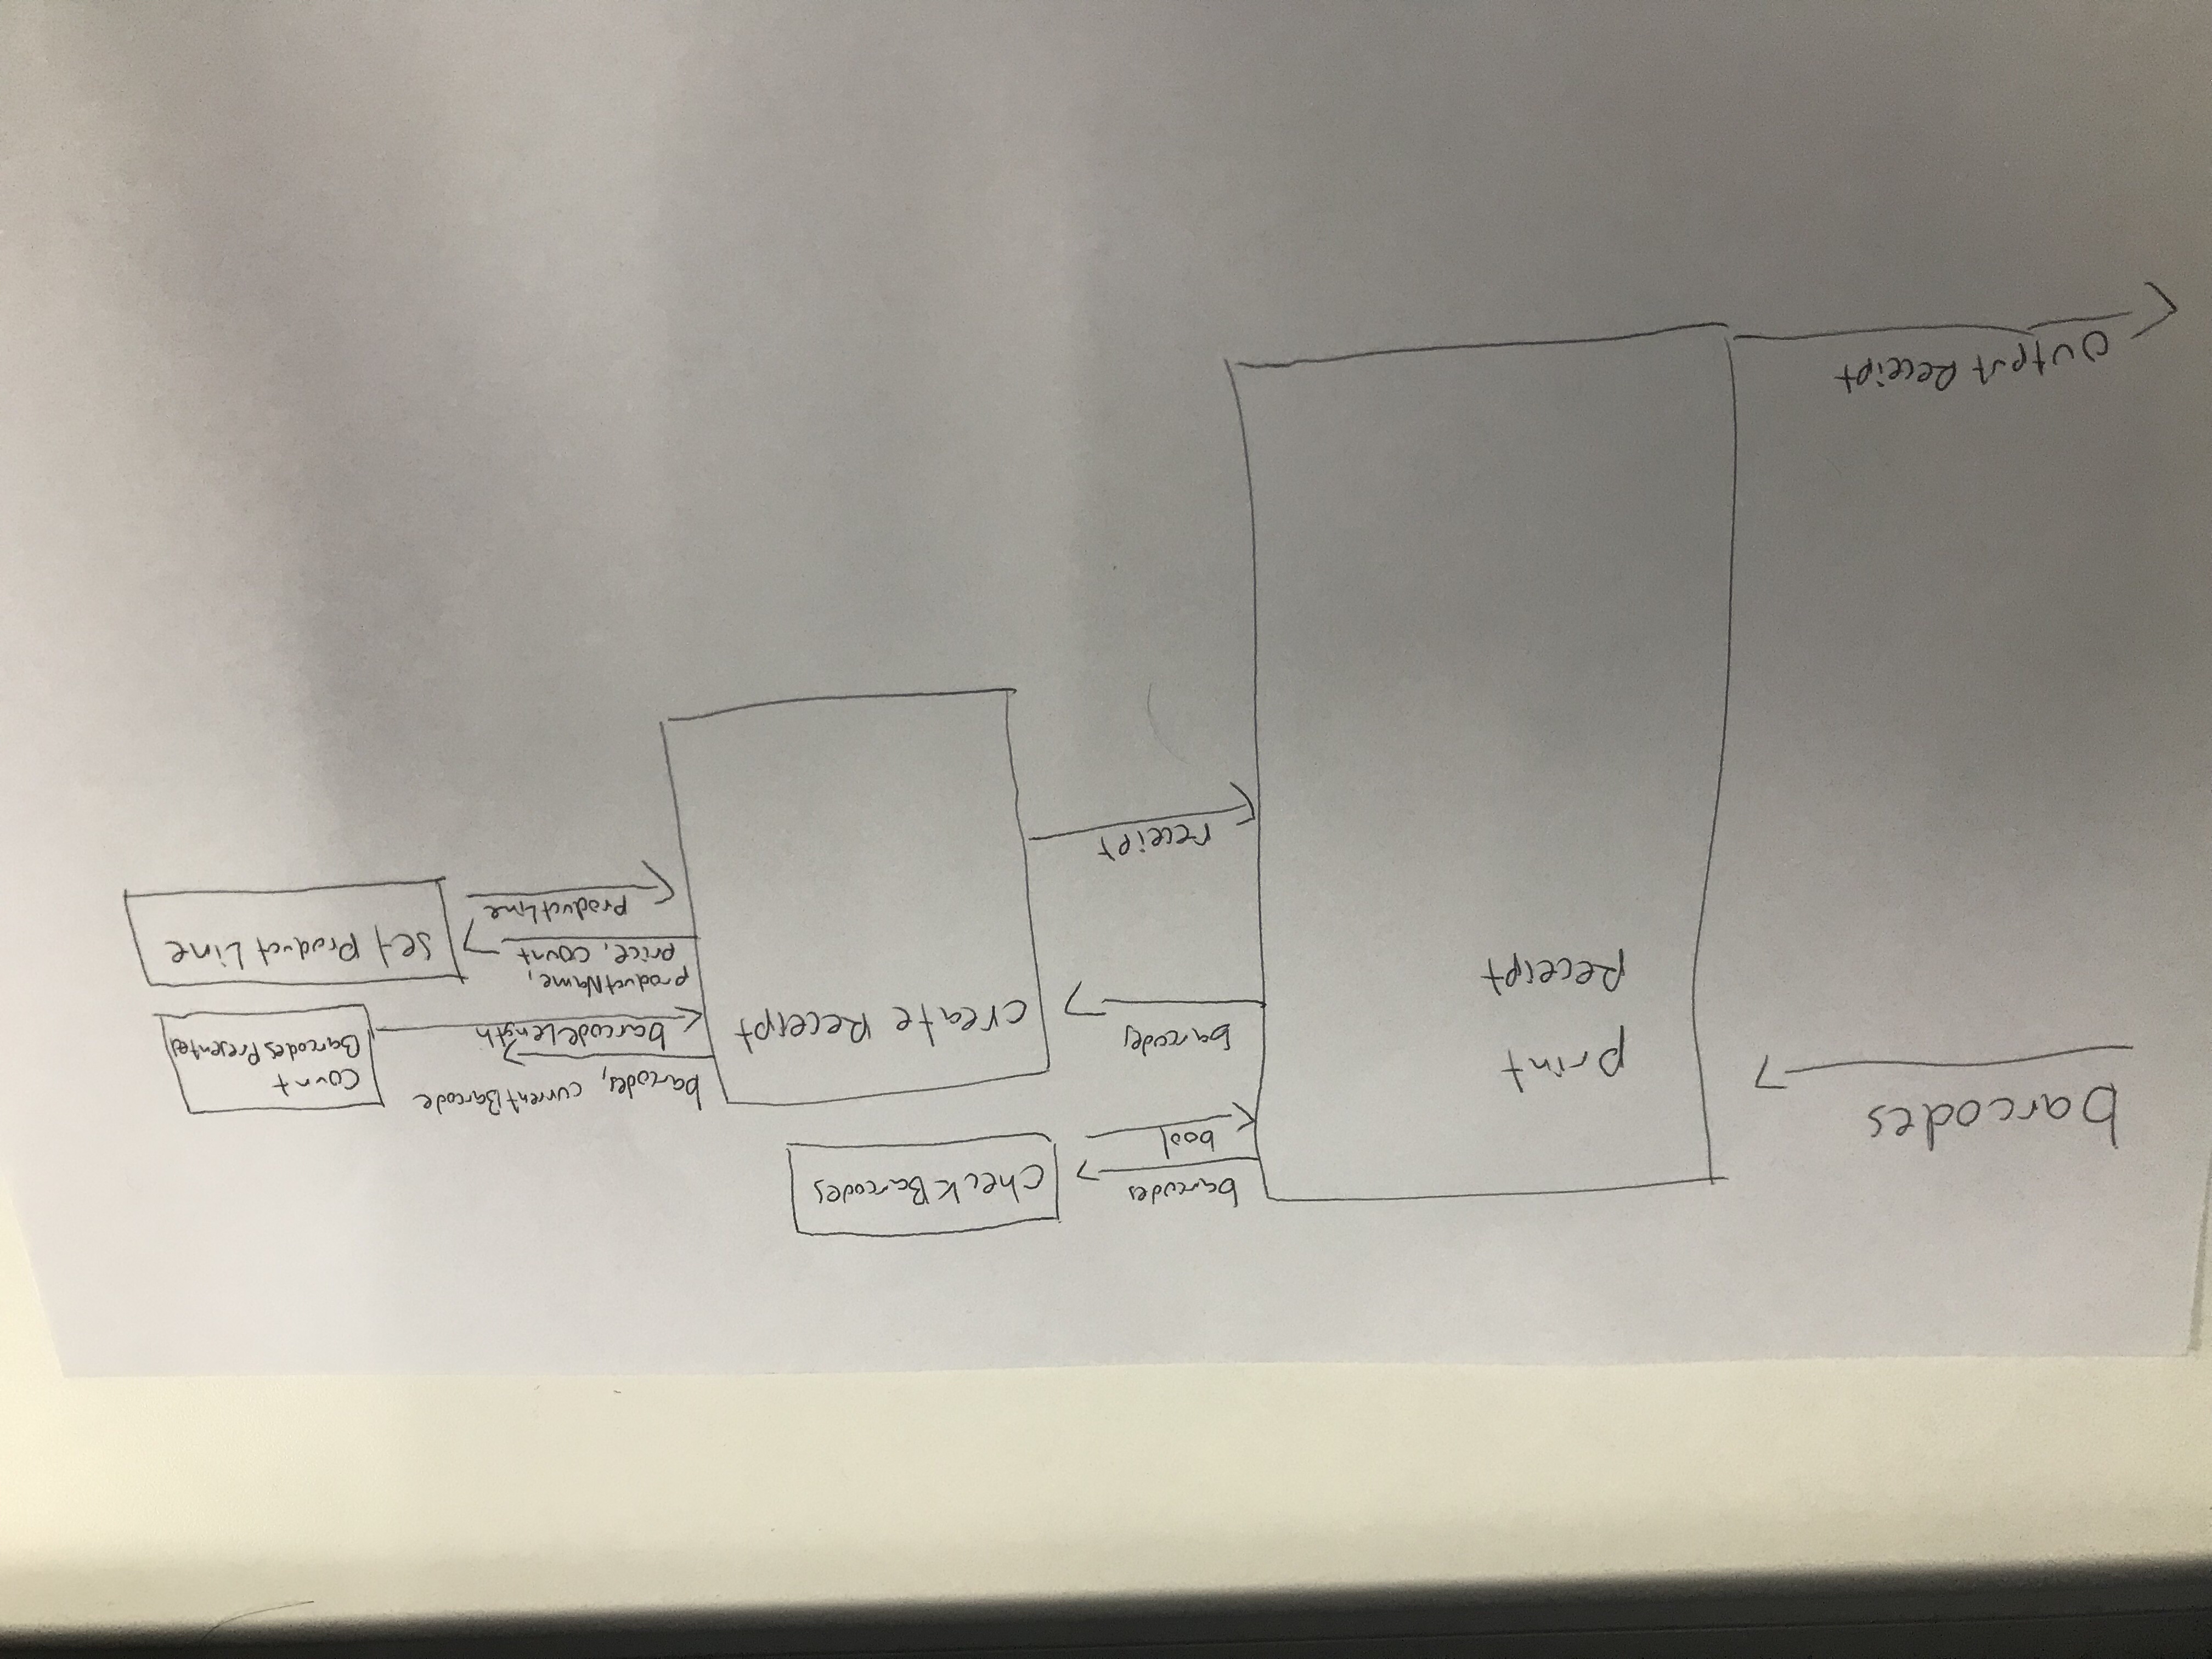 barcodes
print
Receipt
barcodes
checkBarcodes
bool
barcodes
create Receipt
barcodes, currentBarcode
count
BarcodesPresented
barcodeLength
productName,
price, count
set Product Line
ProductLine
receipt
output Receipt